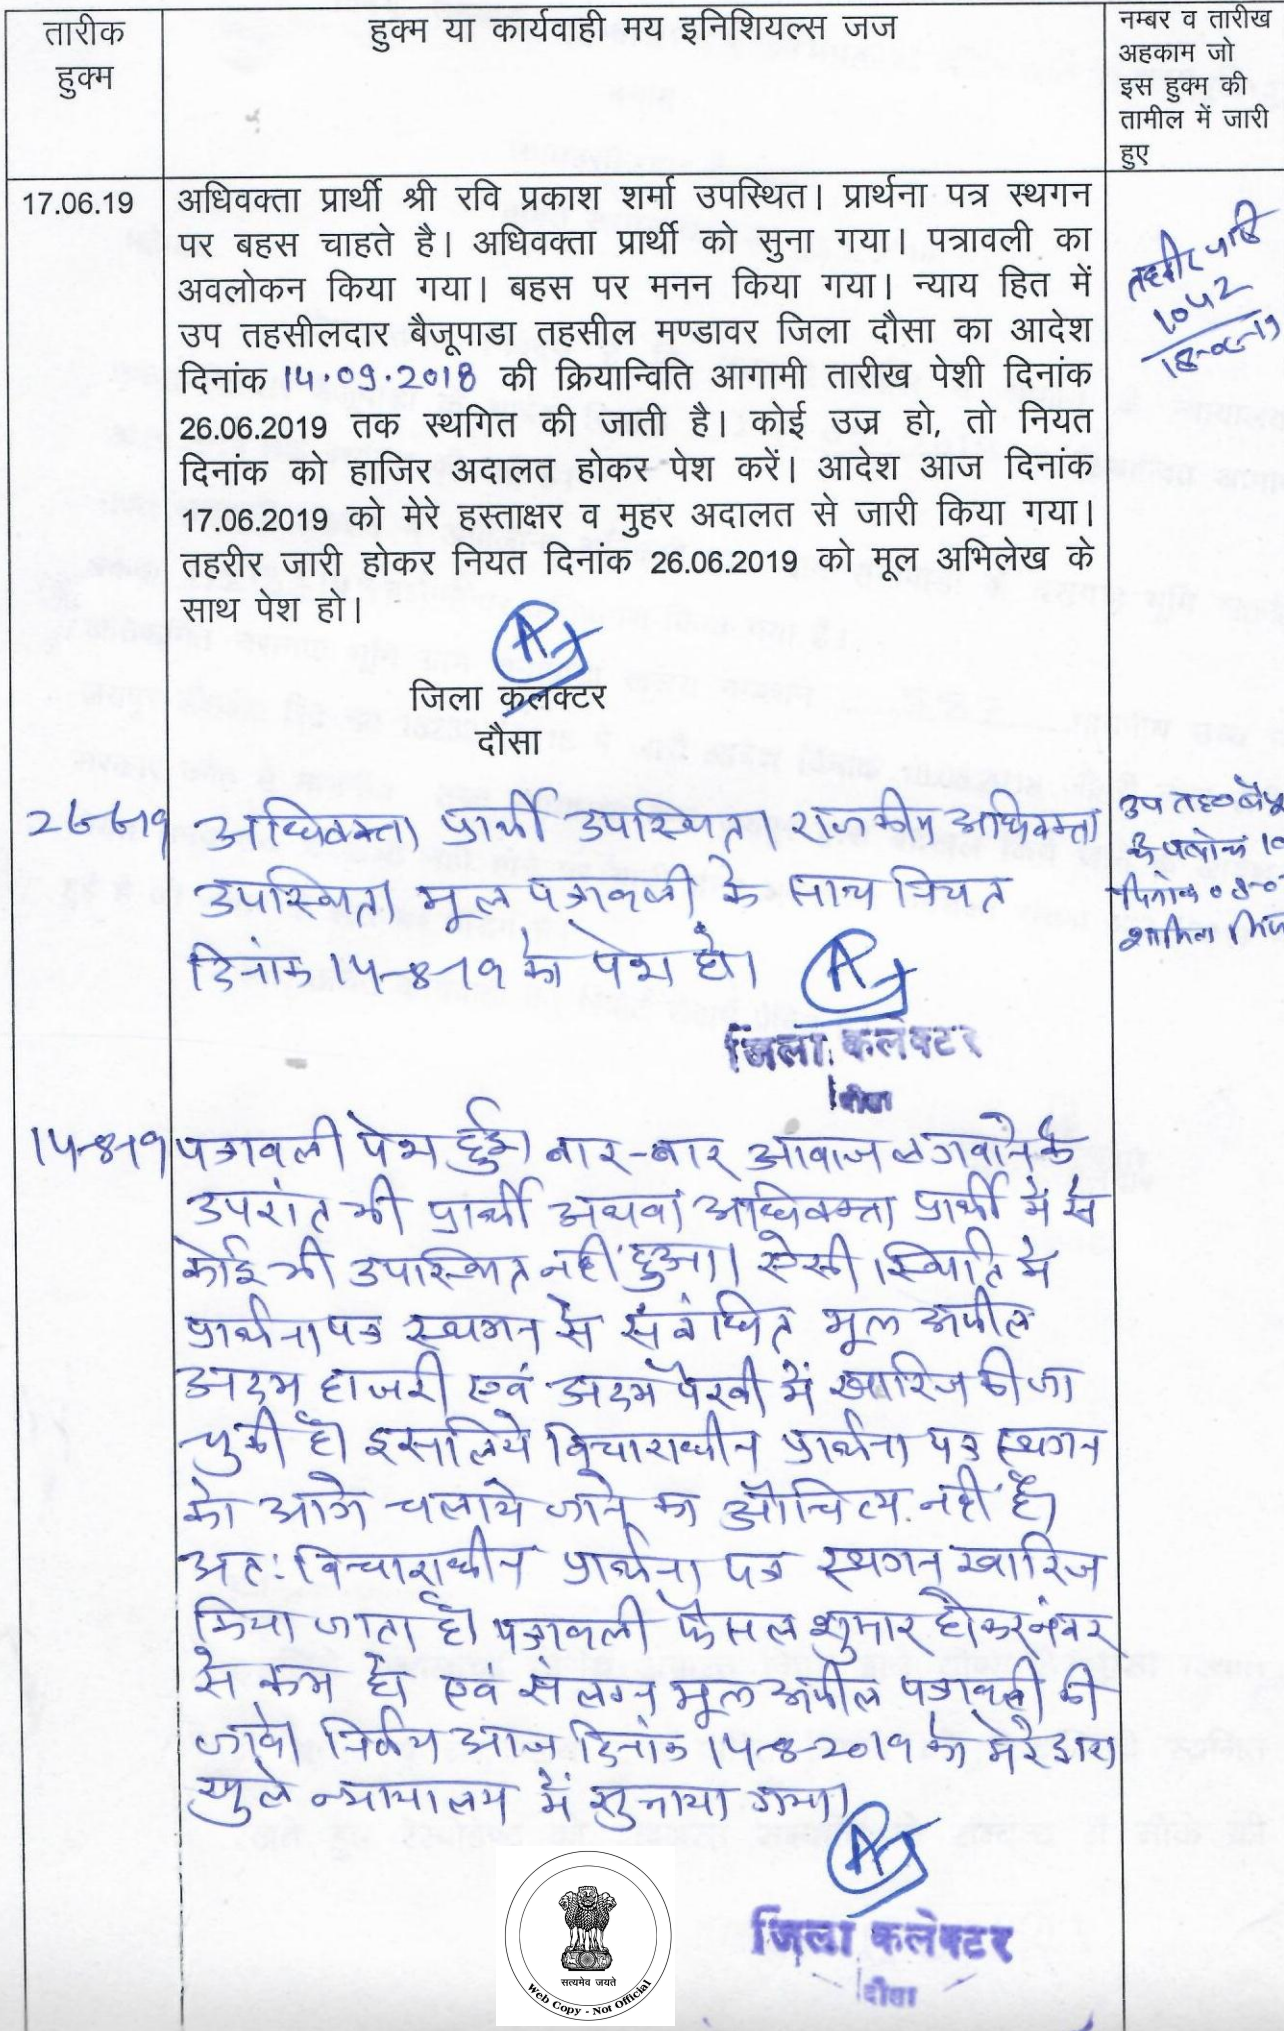 तारीक
हुक्म
हुक्म या कार्यवाही मय इनिशियल्स जज
नम्बर व तारीख
अहकाम जो
इस हुक्म की
तामील में जारी
हुए
17.06.19
अधिवक्ता प्रार्थी श्री रवि प्रकाश शर्मा उपस्थित। प्रार्थना पत्र स्थगन
पर बहस चाहते है। अधिवक्ता प्रार्थी को सुना गया। पत्रावली का
अवलोकन किया गया। बहस पर मनन किया गया। न्याय हित में
उप तहसीलदार बैजूपाडा तहसील मण्डावर जिला दौसा का आदेश
दिनांक 14.09.2018 की क्रियान्विति आगामी तारीख पेशी दिनांक
26.06.2019 तक स्थगित की जाती है। कोई उज्र हो, तो नियत
दिनांक को हाजिर अदालत होकर पेश करें। आदेश आज दिनांक
17.06.2019 को मेरे हस्ताक्षर व मुहर अदालत से जारी किया गया।
तहरीर जारी होकर नियत दिनांक 26.06.2019 को मूल अभिलेख के
साथ पेश हो।
तहरीर जारी
1042
18-06-19
जिला कलक्टर
दौसा
26-6-19 अधिवक्ता प्रार्थी उपस्थित। राजकीय अधिवक्ता
उपस्थित। मूल पत्रावली के साथ नियत
दिनांक 14-8-19 को पेश हो।
उप तह०
जिला कलेक्टर
दौसा
14-8-19 पत्रावली पेश हुई। बार-बार आवाज लगवाने के
उपरांत भी प्रार्थी अथवा अधिवक्ता प्रार्थी में से
कोई भी उपस्थित नहीं हुआ। ऐसी स्थिति में
प्रार्थना पत्र स्थगन से संबंधित मूल अपील
अदम हाजरी एवं अदम पैरवी में खारिज की जा
चुकी है। इसलिये विचाराधीन प्रार्थना पत्र स्थगन
को आगे चलाये जाने का औचित्य नहीं है।
अत: विचाराधीन प्रार्थना पत्र स्थगन खारिज
किया जाता है। पत्रावली फैसल शुमार होकर नंबर
से कम हो एवं संलग्न मूल अपील पत्रावली की
जावे। निर्णय आज दिनांक 14-8-2019 को मेरे द्वारा
खुले न्यायालय में सुनाया गया।
जिला कलेक्टर
दौसा
सत्यमेव जयते
Web Copy - Not Official